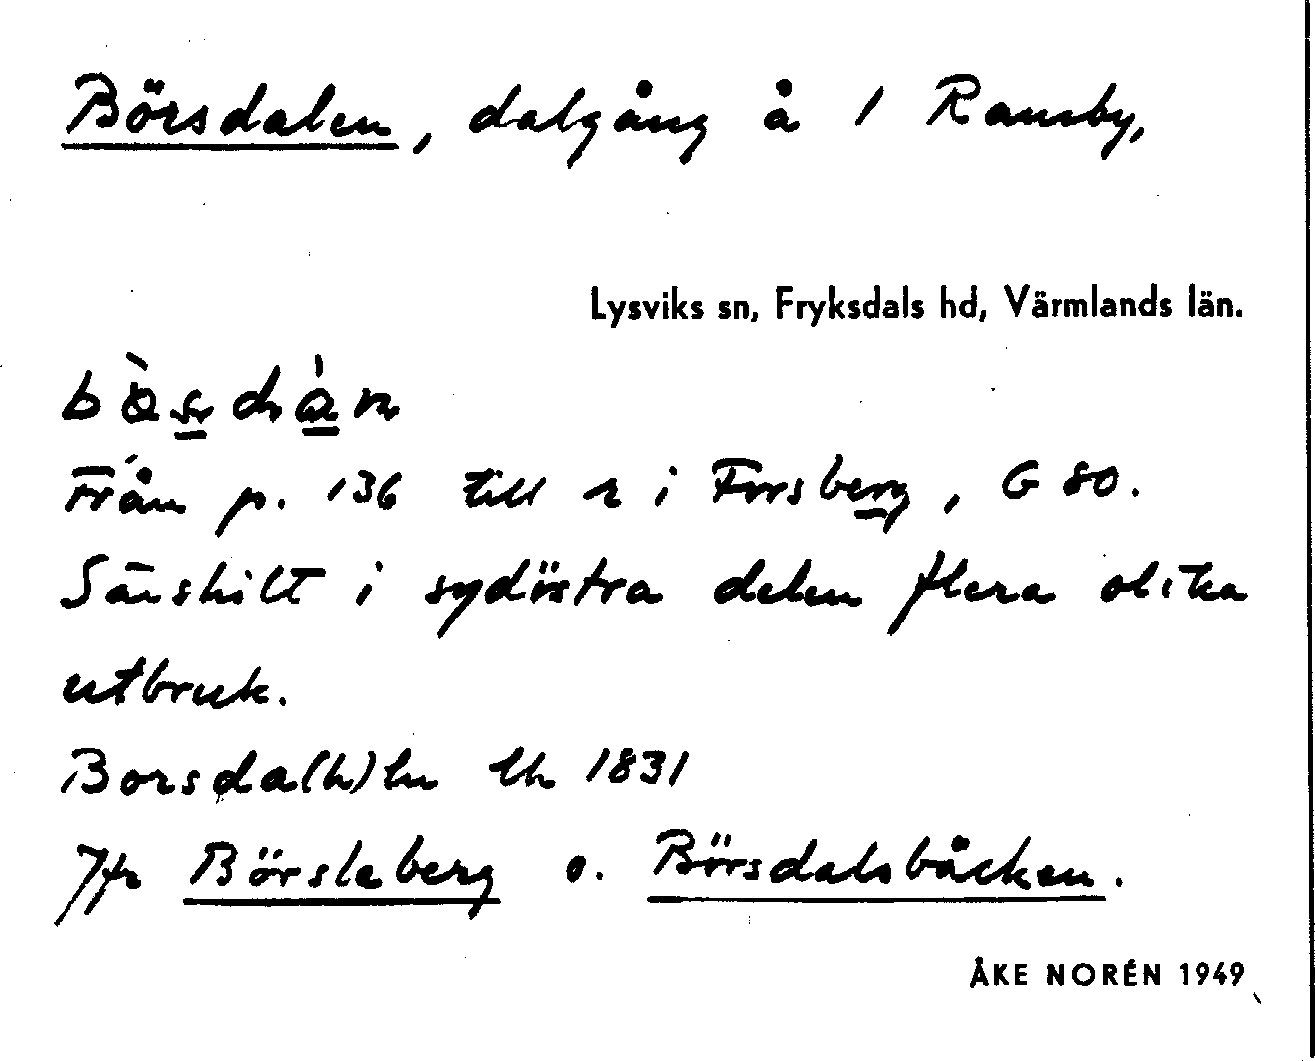 Börsdalen, dalgång å 1 Ransby,
Lysviks sn, Fryksdals hd, Värmlands län.
Från p. 136 till r i Forsberg, G 80.
Särskilt i sydöstra delen flera olika
utbruk.
Borsda(h)len lh 1831
Jfr Börsleberg o. Börsdalsbäcken.
ÅKE NORÉN 1949